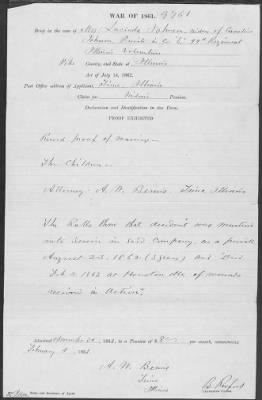 WAR OF 1861. 9761
Brief in the case of Mrs Lucinda Johnson widow of
Johnson Private in Co "C" 99th Regiment
Illinois Volunteers
Pike County, and State of Illinois
Act of July 14, 1862.
Post Office address of Applicant, Time, Illinois
Claim for Widow's Pension.
Declaration and Identification in Due Form.
PROOF EXHIBITED
Record proof of marriage
The Children
Attorney A. W. Bemis, Time, Illinois
The Rolls show that decedent was mustered
into Service in said Company, as a private
August 23. 1862 (3 years) and "Died
Feb 1863 at Houston Mo. of wounds
received in Action".
Admitted 1863, to a Pension of $8 per month, commencing
February 1863.
A. W. Bemis
Time
Illinois